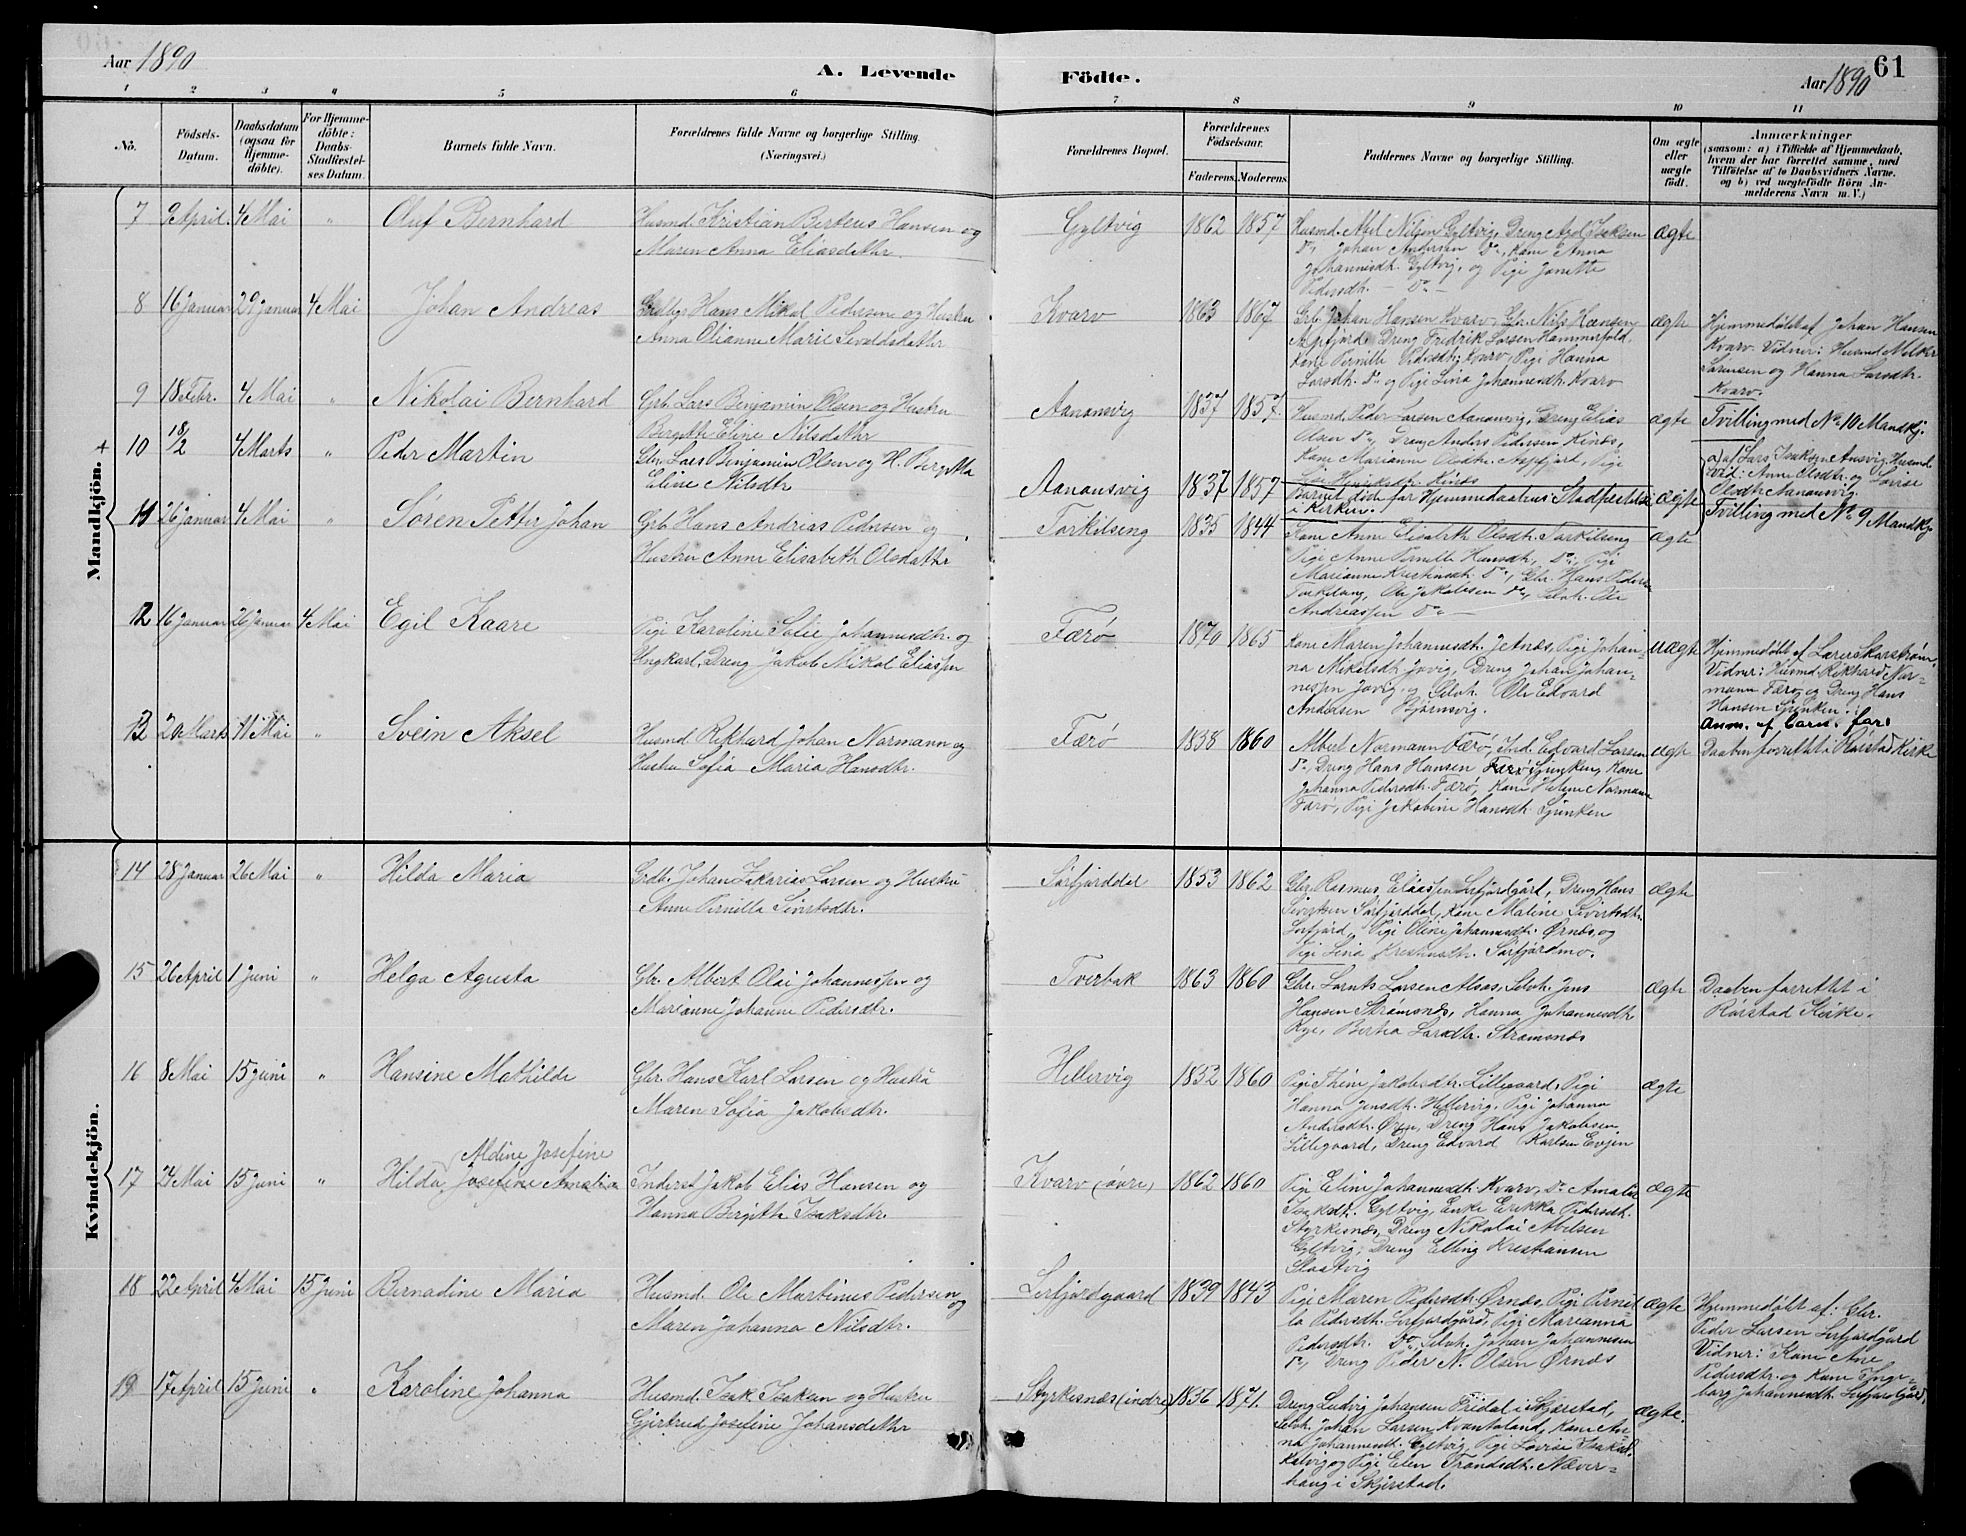 Aar 1890
A. Levende
Födte.
Aar 1890
61
1 2 3 4 5 6 7 8 9 10 11
No.
Födsels-
Datum.
Daabsdatum
(ogsaa for
Hjemme-
döbte).
For Hjemme-
döbte:
Daabs-
Stadfæstel-
ses Datum.
Barnets fulde Navn.
Forældrenes fulde Navne og borgerlige Stilling.
(Næringsvei.)
Forældrenes Bopæl.
Forældrenes
Födselsaar.
Faderens. Moderens.
Faddernes Navne og borgerlige Stilling.
Om ægte
eller
uægte
födt.
Anmærkninger
(saasom: a) i Tilfælde af Hjemmedaab,
hvem der har forrettet samme, med
Tilföielse af to Daabsvidners Navne,
og b) ved uægtefödte Börn An-
melderens Navn m. V.)
Mandkjön.
7 9 April 4 Mai " Oluf Bernhard
Husmd. Kristian Berteus Hansen og
Maren Anna Eliasdathr.
Gyltvig 1862 1857
Husmd. Abel Nilsen Gyltvig, Dreng Axel Isaksen
Do, Johan Andersen Do, Kone Anna
Johannesdt. Gyltvig, og Pige Janette
Pedersdt. — Do —
ægte
8 16 Januar 29 Januar 4 Mai Johan Andreas
Hans Mikal Pedersen og Hustru
Anna Olianne Marie Sevaldsdathr
Kvarv 1863 1867
Grb. Johan Hansen Kvarv, Gbr. Nils Hansen
Dreng Fredrik Larsen Hammerfald,
Kone Pernille Pedersdt. Kvarv, Pige Hanna
Larsdt. Do og Pige Lina Johannesdt. Kvarv
ægte
Hjemmedöbt af Johan Hansen
Kvarv. Vidner: Husmd
Sörensen og Hanna Larsdtr.
Kvarv.
9 18 Febr. 4 Mai " Nikolai Bernhard
Grb. Lars Benjamin Olsen og Hustru
Bergitte Eline Nilsdathr
Aanansvig 1837 1857.
Husmd. Peder Larsen Aanansvig, Dreng Elias
Olsen Do, Dreng Anders Pedersen Kines,
Kone Marianne Olsdt. Aspfjord, Pige
Henriksdt. Kinæs
ægte
Tvilling med No 10 Mandkj.
+ 10 18/2 4 Marts " Peder Martin
Gbr. Lars Benjamin Olsen og H. Bergitta
Eline Nilsdtr
Aanansvig 1837 1857
Barnet död før Hjemmedaabens Stadfæstelse
i Kirken.
ægte
a) af Lars Isaksen Ansvig. Husmd.
Vid: Anne Olsdtr. og Lovise
Olsdtr Aanansvig.
Tvilling med No 9 Mandkj.
11 26 Januar 4 Mai " Sören Petter Johan
Grb. Hans Andrias Pedersen og
Hustru Anne Elisabeth Olsdathr
Torkilseng 1835 1844
Kone Anne Elisabeth Olsdt. Torkilseng
Pige Anne Pernille Hansdt. Do, Pige
Marianne Kristensdt. Do, Gbr. Hans Peders
Torkilseng, Ole Jakobsen Do, Selvh. Ole
Andreassen Do —
ægte
12 16 Januar 26 Januar 4 Mai Egil Kaare
Pige Karoline Sofie Johannesdtr. og
Ungkarl, Dreng Jakob Mikal Eliassen
Færö 1870 1865
Kone Maren Johannesdt. Jetnæs, Pige Johan-
na Mikelsdt. Jovig, Dreng Johan Johan-
nessen Jovig, og Selvh. Ole Edvard
Andersen Bjørnsvig.
uægte
Hjemmedöbt af Lærer Skarström,
Vidner: Husmd. Rikhard Nor-
mann Færö og Dreng Hans
Hansen Sjunken.
Anm. af barn. far:
13 20 Marts 11 Mai " Svein Aksel
Husmd. Rikhard Johan Normann og
Hustru Sofia Maria Hansdtr.
Færö 1838 1860
Albert Normann Færö, Ind. Edvard Larsen
Do, Dreng Hans Hansen Sjunken, Kone
Johanna Pedersdt. Færö, Kone Helene Normann
Færö, Pige Jakobine Hansdt. Sjunken
ægte
Daaben forrettet i Rörstad Kirke
Kvindekjön.
14 28 Januar 26 Mai " Hilda Maria
Grdb. Johan Zakarias Larsen og Hustru
Anne Pernilla Sivertsdtr.
Sörfjorddal 1853 1862
Gbr. Rasmus Eliassen Lerfjordgård, Dreng Hans
Sivertsen Sörfjorddal, Kone Maline Sivertsdtr.
Sörfjord, Pige Oline Johannesdt. Ørnæs, og
Pige Lina Sörfjordmo.
ægte
15 26 April 1 Juni " Helga Agusta
Gbr. Albert Olai Johannessen og
Marianne Johanne Pedersdtr.
Tverbak 1863 1860
Gbr. Larsen Alsos, Selvh. Jens
Hansen Strömsnæs, Hanna Johannesdt
Rye, Bertha Larsdtr. Strömsnæs
ægte
Daaben forrettet i
Rörstad Kirke.
16 8 Mai 15 Juni " Hansine Mathilde
Gbr. Hans Karl Larsen og Hustru
Maren Sofia Jakobsdtr.
Hellervig 1832 1860
Pige Thine Jakobsdtr. Lillegaard, Pige
Hanna Jensdt. Hellervig, Pige Johanna
Andersdtr. Øren, Dreng Hans Jakobsen
Lillegaard, Dreng Edvard Karlsen Evjen
ægte
17 24 Mai 15 Juni " Aldine Josefine
Hilda Josefine Amalia
Inderst Jakob Elias Hansen og
Hanna Bergitte Isaksdtr.
Kvarv (övre) 1862 1860
Pige Eline Johannesdt. Kvarv, Do Amalia
Isaksdt. Gyltvig, Enke Erikka Pedersdt.
Styrkesnæs, Dreng Nikolai Abelsen
Gyltvig, Dreng Elling Kristiansen
Slaatvig
ægte
18 22 April 4 Mai 15 Juni Bernadine Maria
Husmd. Ole Martinus Pedersen og
Maren Johanna Nilsdtr.
Lerfjordgaard 1839 1843
Pige Maren Pedersdt. Ørnæs, Pige Pernil-
la Pedersdt. Lerfjordgård, Pige Marianna
Pedersdtr. Do, Selvh. Johan Johannesen
Do, Dreng Peder N. Olsen Ørnæs
ægte
Hjemmedöbt af: Gbr.
Peder Larsen Lerfjordgård
Vidner: Kone Ane
Pedersdtr. og Kone Inge-
borg Johannesdt. Lerfjordgård.
19 17 April 15 Juni " Karoline Johanna
Husmd. Isak Isaksen og Hustru
Gjertrud Josefine Johansdathr
Styrkesnæs (indre) 1856 1871.
Dreng Ludvig Johansen Fridal i Skjerstad,
Selvh. Johan Larsen Kvantoland, Kone An-
na Johannesdt. Gyltvig, Pige Lovise Isaksdt.
Kalvig og Pige Elen Trondsdt. Næver-
haug i Skjerstad.
ægte.